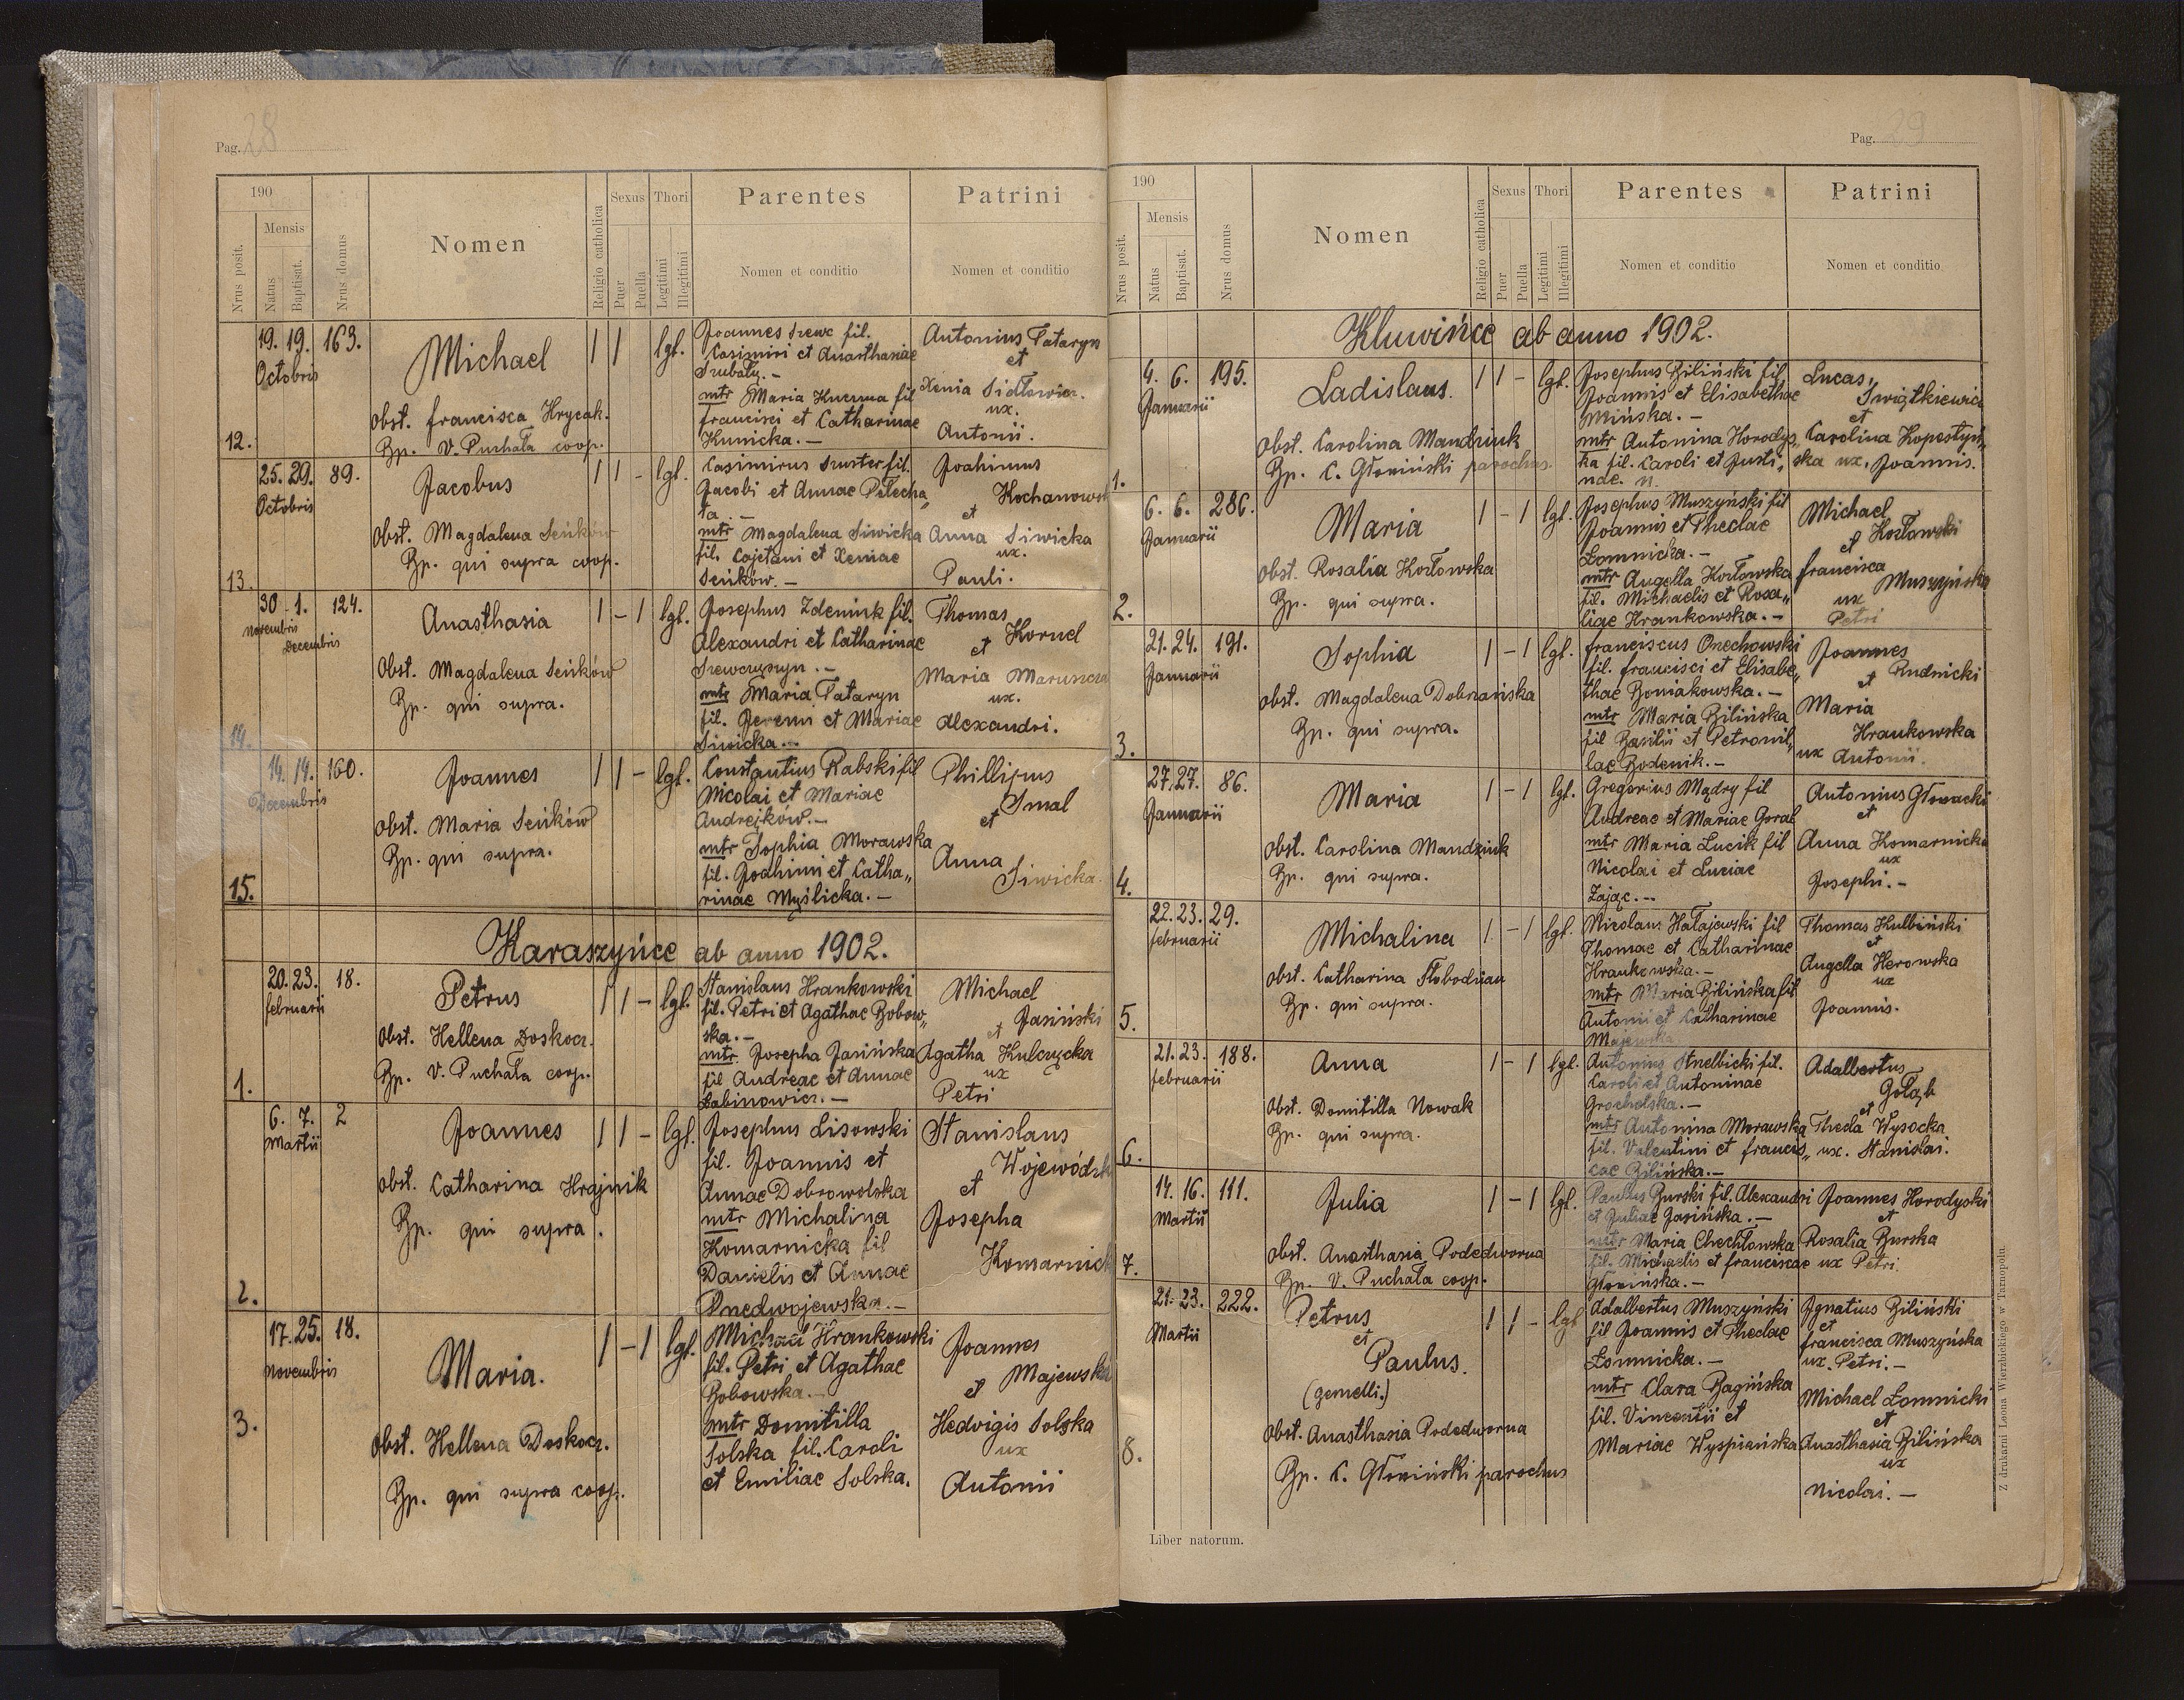 Pag. 28
190
Mensis
Nrus posit.
Natus
Baptisat.
Nrus domus
Nomen
Religio catholica
Sexus
Puer
Puella
Thori
Legitimi
Illegitimi
Parentes
Nomen et conditio
Patrini
Nomen et conditio
12.
19. 19. 163.
Octobris
Michael
1 1 lgl.
obst. francisca Hrycak.
Bp. V. Puchała coop.
Joannes Szewc fil.
Casimiri et Anasthasiae
mtr Maria Kuczma fil
francisci et Catharinae
Kunicka. —
Antonius Tataryn
et
Xenia Sidłowicz.
ux.
Antonii.
13.
25. 29. 89.
Octobris
Jacobus
1 1 - lgl.
Obst. Magdalena Seńków
Bp. qui supra coop.
Casimirus Szuster fil.
Jacobi et Annae Pelecha„
ta. —
mtr Magdalena Siwicka
fil. Cajetani et Xeniae
Seńków. —
Joahimus
Kochanowsk
et
Anna Siwicka
ux.
Pauli.
14.
30 - 1. 124.
novembris
Decembris
Anasthasia
1 - 1 lgl.
Obst. Magdalena Seńków
Bp. qui supra.
Josephus Zdeniuk fil.
Alexandri et Catharinae
Szewczyszyn. —
mtr Maria Tataryn
fil. Jeremi et Mariae
Siwicka. —
Thomas
Kornel
et
Maria
ux.
Alexandri.
15.
14. 14. 160.
Decembris
Joannes
1 1 - lgl.
Obst. Maria Seńków
Bp. qui supra.
Constantius Rabski fil
Nicolai et Mariae
Andrejków. —
mtr Sophia Morawska
fil. Joahimi et Catha„
rinae Myślicka. —
Phillipus
Smal
et
Anna
Siwicka.
Karaszyńce ab anno 1902.
1.
20. 23. 18.
februarii
Petrus
1 1 - lgl.
Obst. Hellena Doskocz.
Bp. V. Puchała coop.
Stanislaus Hrankowski
fil. Petri et Agathae Bobow„
ska. —
mtr. Josepha Jasińska
fil Andreae et Annae
Sabinowicz. —
Michael
Jasiński
et
Agatha Kulczycka
ux
Petri
2.
6. 7. 2
Martii
Joannes
1 1 - lgl.
Obst. Catharina Hrajnik
Bp. qui supra.
Josephus Lisowski
fil. Joannis et
Annae Dobrowolska
mtr Michalina
Komarnicka fil
Danielis et Annae
Przedwojewska. —
Stanislaus
Wojewódzk
et
Josepha
Komarnick
3.
17. 25. 18.
novembris
Maria.
1 - 1 lgl.
Obst. Hellena Doskocz.
Bp. qui supra coop.
Michael Hrankowski
fil. Petri et Agathae
Bobowska. —
mtr Domitilla
Solska fil. Caroli
et Emiliae Solska.
Joannes
Majewska
et
Hedvigis Solska
ux
Antonii
Pag. 29
190
Mensis
Nrus posit.
Natus
Baptisat.
Nrus domus
Nomen
Religio catholica
Sexus
Puer
Puella
Thori
Legitimi
Illegitimi
Parentes
Nomen et conditio
Patrini
Nomen et conditio
Kluwińce ab anno 1902.
1.
4. 6. 195.
Januarii
Ladislaus.
1 1 - lgl.
Obst. Carolina Mandziuk
Bp. C. Głowiński parochus.
Josephus Biliński fil
Joannis et Elisabethae
Mińska. —
mtr Antonina Horodys„
ka fil. Caroli et Justi„
nae. N.
Lucas,
Świątkiewicz
et
Carolina Kopestyń„
ska ux. Joannis.
2.
6. 6. 286.
Januarii
Maria
1 - 1 lgl.
Obst. Rosalia Kozłowska
Bp. qui supra.
Josephus Muszyński fil
Joannis et Theclae
Łomnicka. —
mtr Angella Kozłowska
fil. Michaelis et Rosa„
liae Hrankowska. —
Michael
Kozłowski
et
francisca
Muszyńska
ux
Petri
3.
21. 24. 191.
Januarii
Sophia
1 - 1 lgl.
obst. Magdalena Dobrzańska
Bp. qui supra.
franciscus Orzechowski
fil. francisci et Elisabe„
thae Boniakowska. —
mtr Maria Bilińska
fil Basilii et Petronil„
lae Bodenik. —
Joannes
Rudnicki
et
Maria
Hrankowska
ux Antonii.
4.
27. 27. 86.
Januarii
Maria
1 - 1 lgl.
Obst. Carolina Mandziuk
Bp. qui supra.
Gregorius Mądry fil
Andreae et Mariae Goral
mtr Maria Lucik fil
Nicolai et Luciae
Zając. —
Antonius Głowacki
et
Anna Komarnicka
ux
Josephi. —
5.
22. 23. 29.
februarii
Michalina
1 - 1 lgl.
Obst. Catharina Słobodzian
Bp. qui supra.
Nicolaus Hałajewski fil
Thomae et Catharinae
Hrankowska. —
mtr Maria Bilińska fil
Antonii et Catharinae
Majewska
Thomas Kulbiński
et
Angella Herowska
ux
Joannis.
6.
21. 23. 188.
februarii
Anna
1 - 1 lgl.
Obst. Domitilla Nowak
Bp. qui supra.
Antonius Strzelbicki fil.
Caroli et Antoninae
Grocholska. —
mtr Antonina Morawska
fil. Valentini et francis„
cae Bilińska. —
Adalbertus
Gołąb
et
Thecla Wysocka
ux. Stanislai.
7.
14. 16. 111.
Martii
Julia
1 - 1 lgl.
Obst. Anasthasia Podedworna
Bp. V. Puchała coop.
Paulus Burski fil. Alexandri
et Juliae Jasińska. —
mtr Maria Chechłowska
fil. Michaelis et franciscae
Głowińska. —
Joannes Horodyski
et
Rosalia Burska
ux Petri.
8.
21. 23. 222.
Martii
Petrus
et
Paulus.
(gemelli.)
1 1 - lgl
Obst. Anasthasia Podedworna
Bp. C. Głowiński parochus
Adalbertus Muszyński
fil Joannis et Theclae
Łomnicka. —
mtr Clara Bagińska
fil. Vincentii et
Mariae Wyspiańska
Ignatius Biliński
et
francisca Muszyńska
ux. Petri. —
Michael Łomnicki
et
Anasthasia Bilińska
ux
Nicolai. —
Liber natorum.
Z drukarni Leona Wierzbickiego w Tarnopolu.